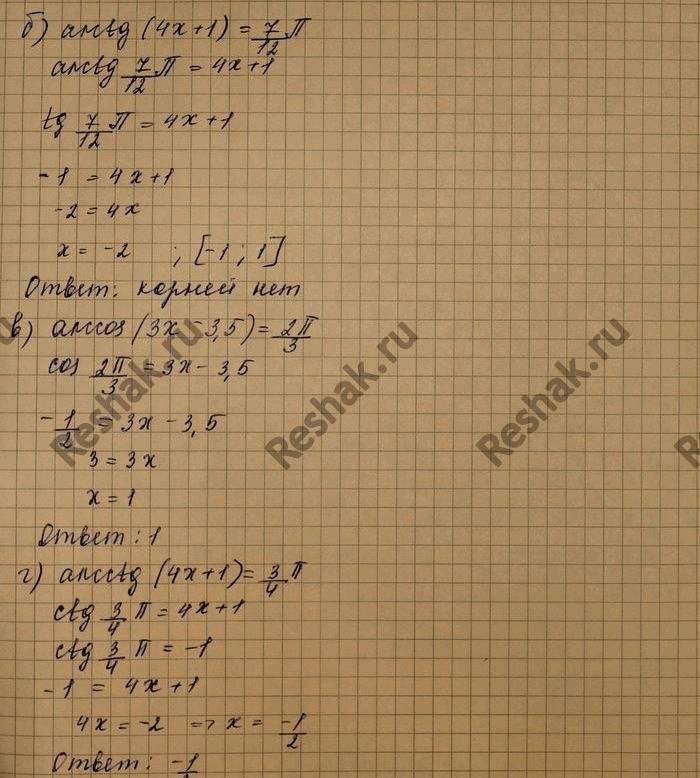 б) arctg (4x+1) = 7/12 π
arctg 7/12 π = 4x+1
tg 7/12 π = 4x+1
-1 = 4x+1
-2 = 4x
x = -2 ; [-1 ; 1]
Ответ: корней нет
в) arccos (3x-3,5) = 2π/3
cos 2π/3 = 3x - 3,5
-1/2 = 3x - 3,5
3 = 3x
x = 1
Ответ: 1
г) arcctg (4x+1) = 3/4 π
ctg 3/4 π = 4x+1
ctg 3/4 π = -1
-1 = 4x+1
4x = -2 => x = -1/2
Ответ: -1/2
Reshak.ru
Reshak.ru
Reshak.ru